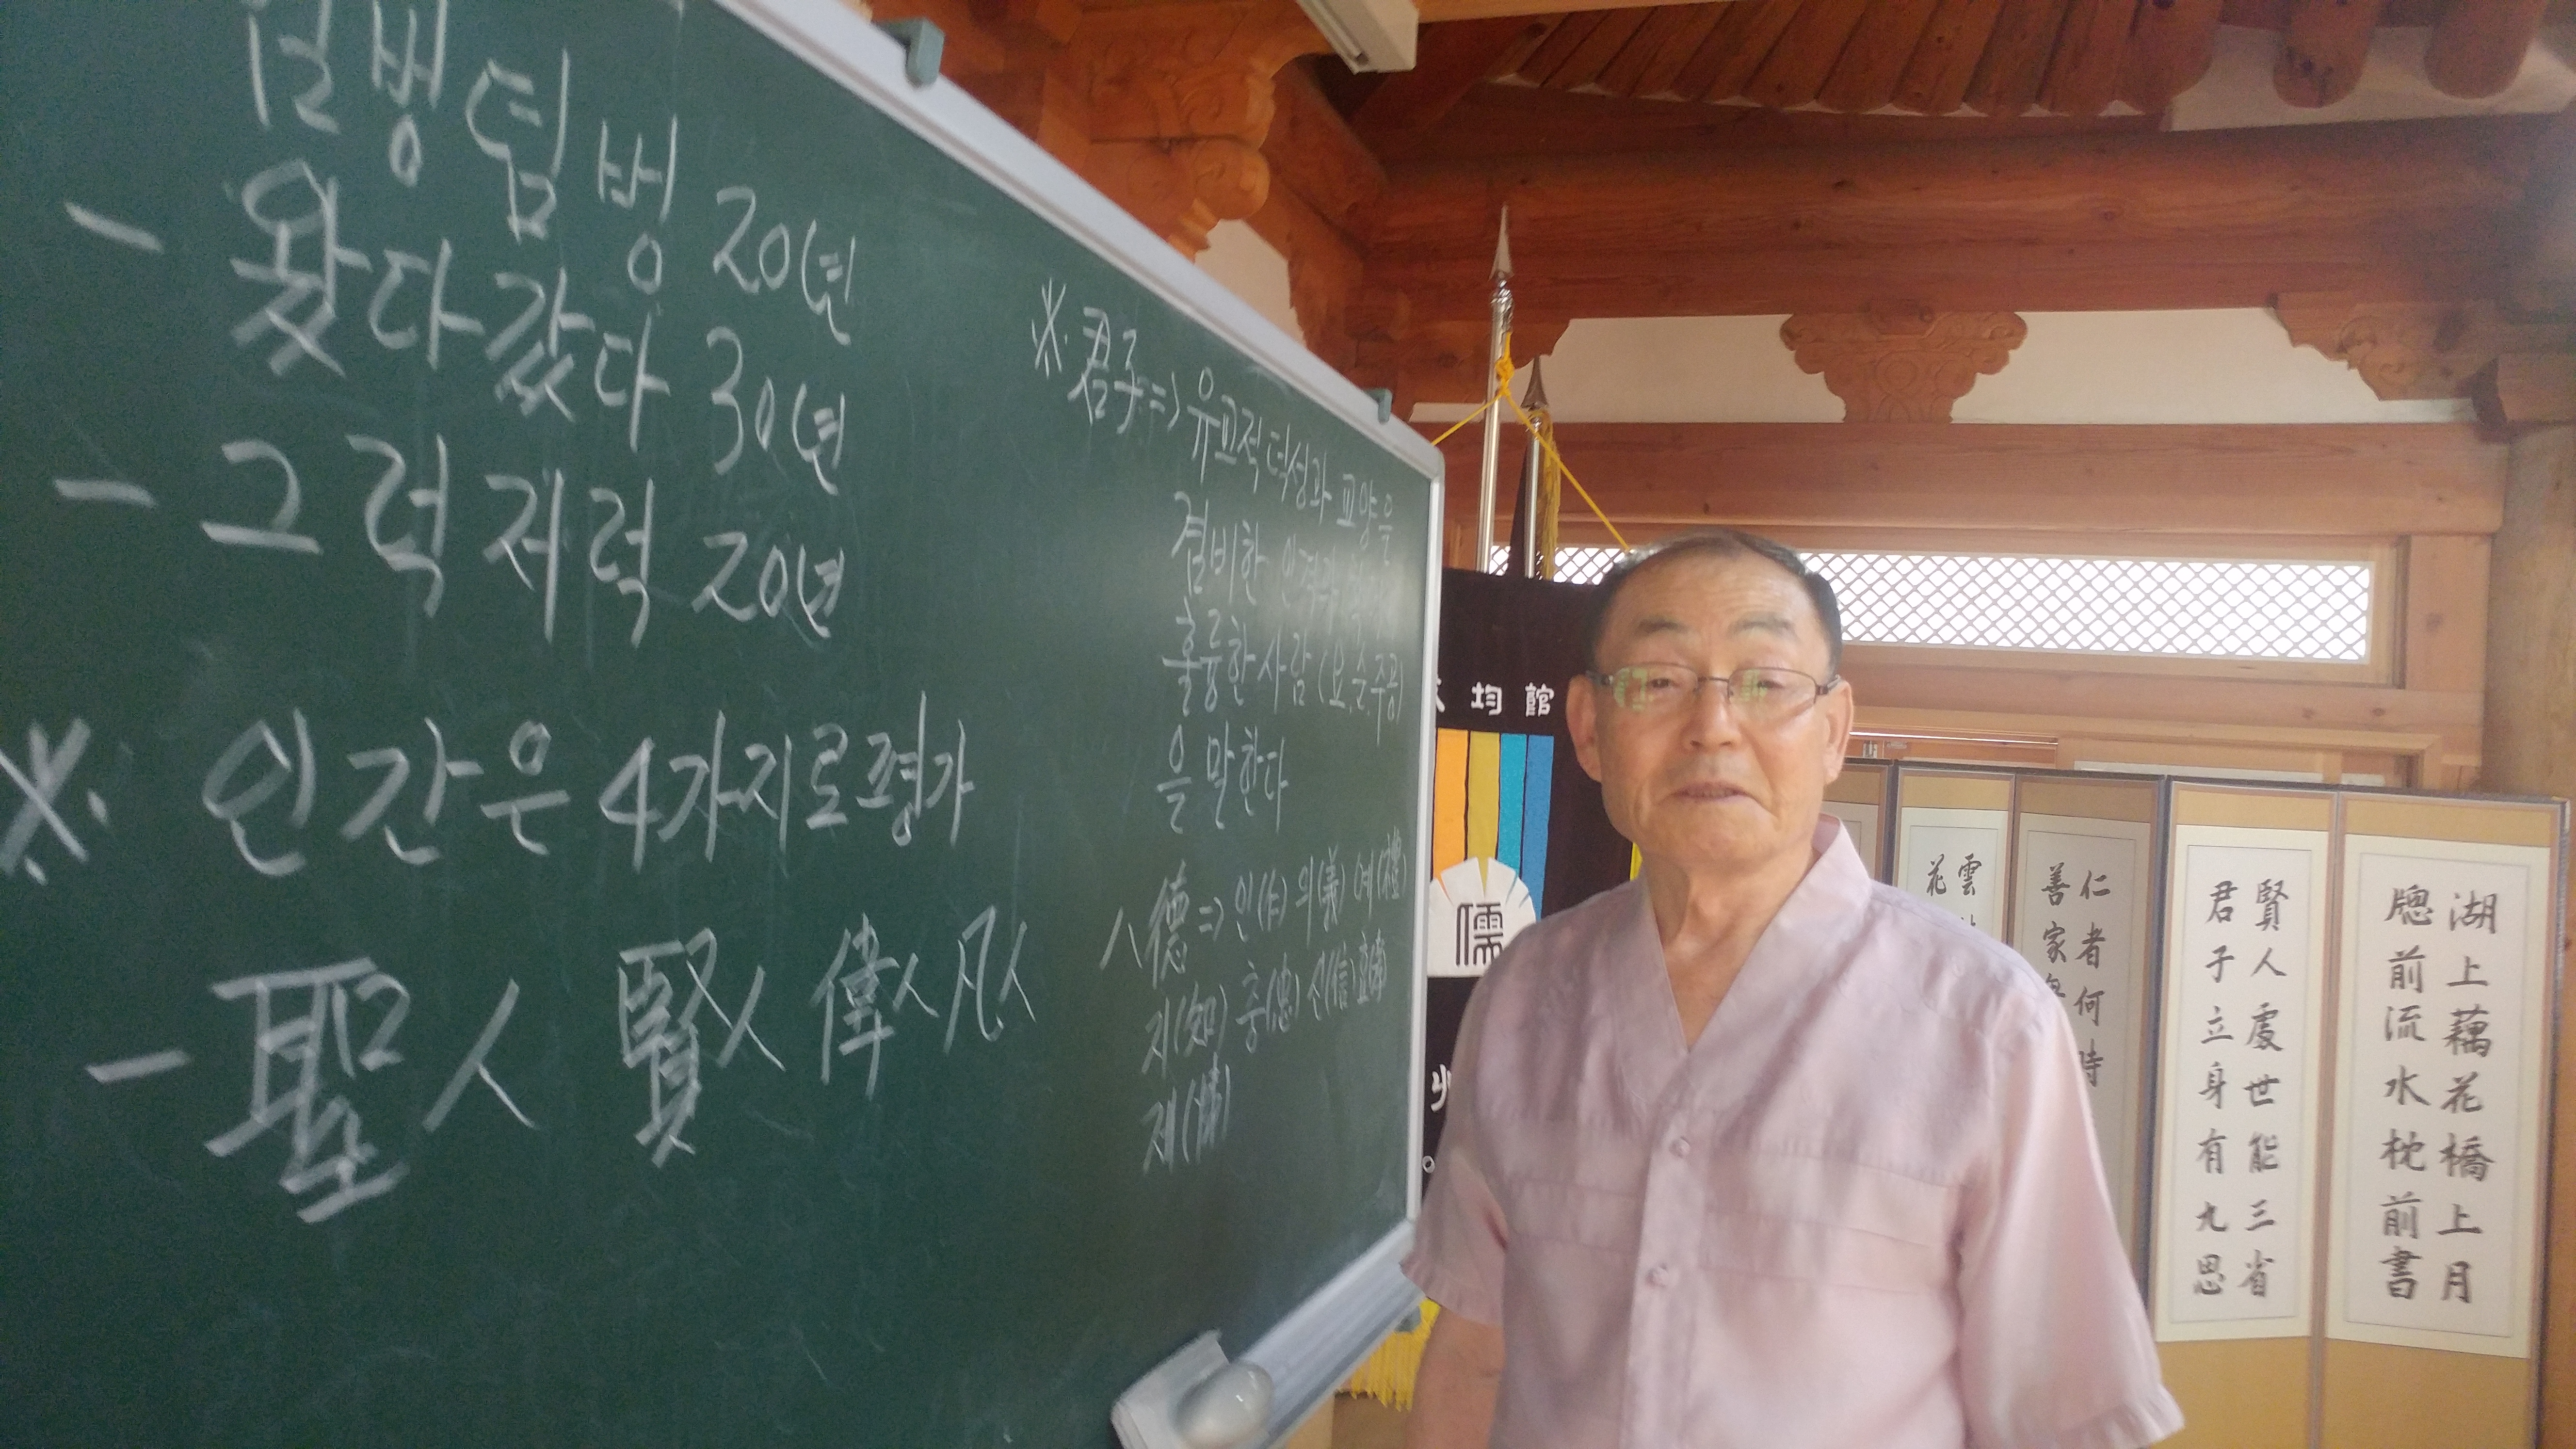 덤벙 20년
- 왔다갔다 30년
- 그럭저럭 20년
※ 인간은 4가지로 평가
- 聖人 賢人 偉人 凡人
※ 君子 => 유교적 덕성과 교양을
겸비한 인격
훌륭한 사람 (요.순.주공)
을 말한다
八德 => 인(仁) 의(義) 예(禮)
지(知) 충(忠) 신(信)
제(悌)
均館
儒
花雲
善家
仁者何時
君子立身有九思
賢人處世能三省
牕前流水枕前書
湖上藕花橋上月